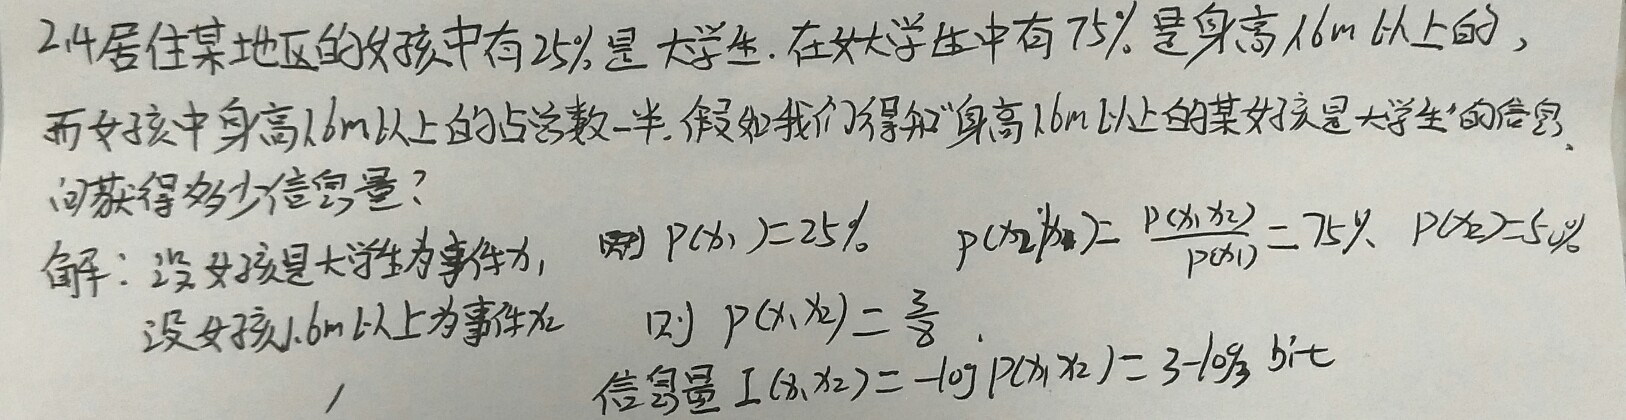 2.4居住某地区的女孩中有25%是大学生.在女大学生中有75%是身高1.6m以上的,
而女孩中身高1.6m以上的占总数一半.假如我们得知"身高1.6m以上的某女孩是大学生"的信息,
问获得多少信息量?
解:设女孩是大学生为事件x₁ 则 P(x₁)=25% P(x₂|x₁)=P(x₁x₂)/P(x₁)=75%、P(x₂)=50%
设女孩1.6m以上为事件x₂ 则 P(x₁x₂)=3/8.
信息量 I(x₁x₂)=-log P(x₁x₂)=3-log3 bit